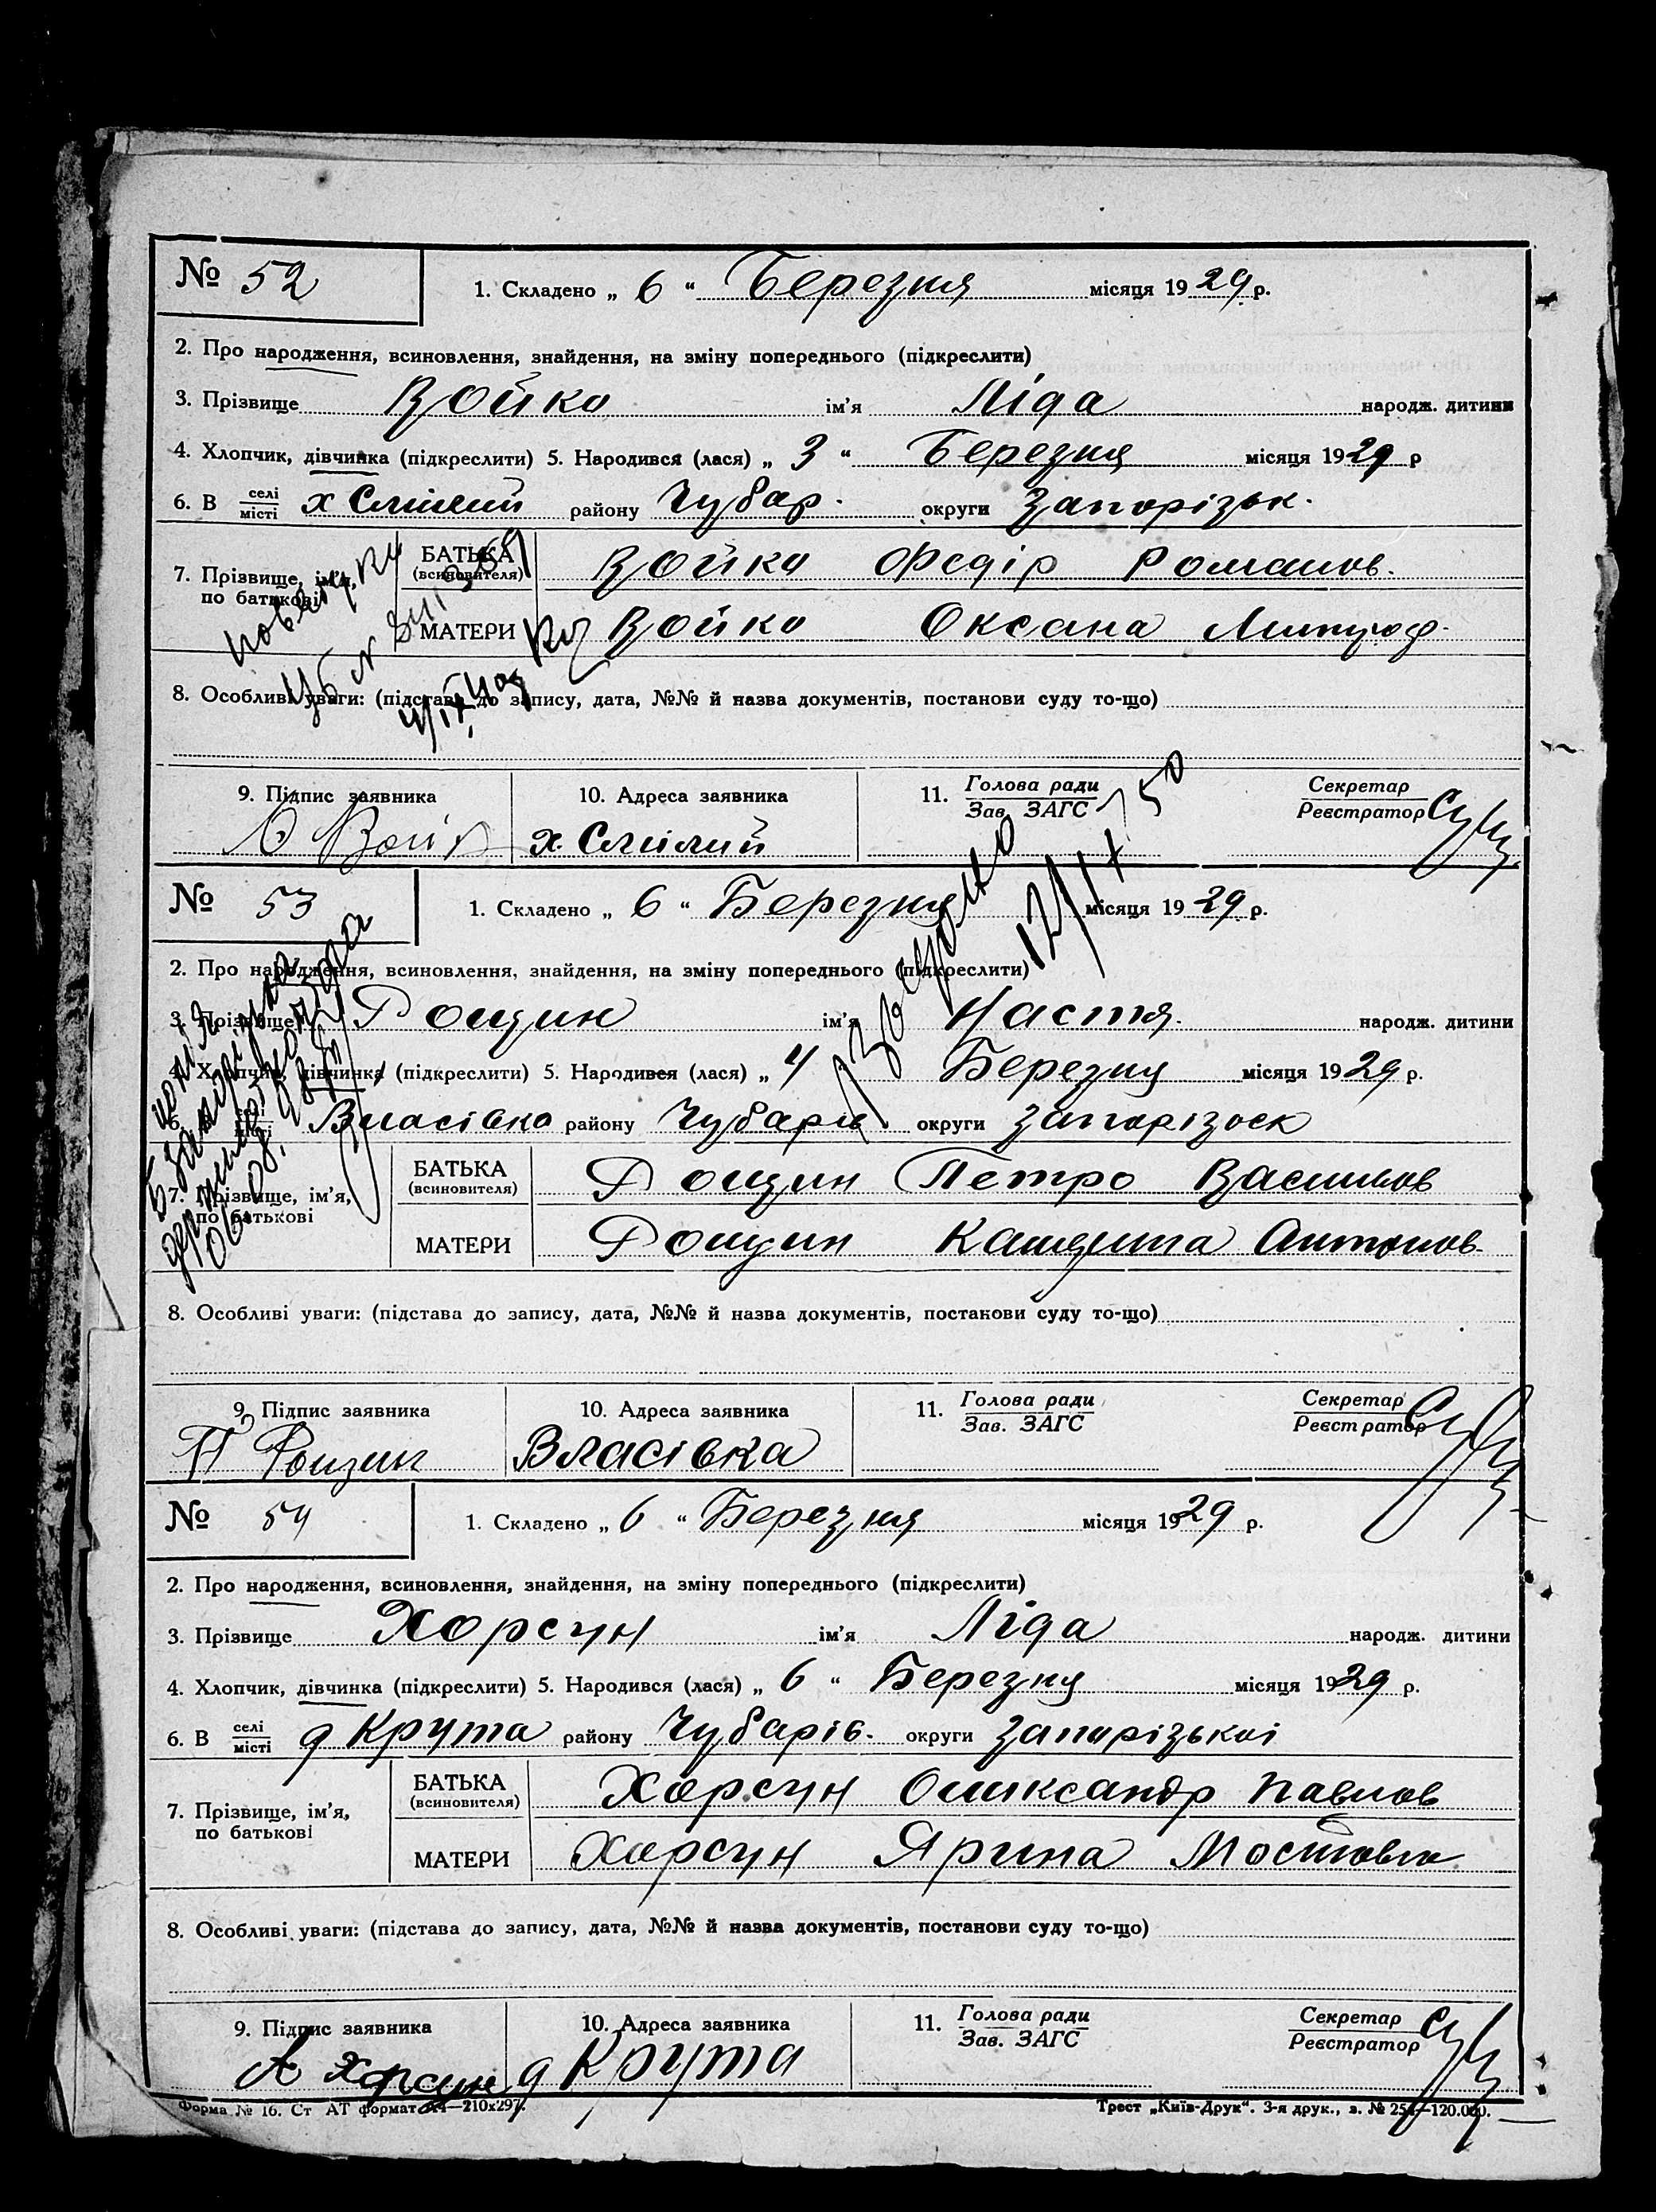 № 52 1. Складено „ 6 “ Березня місяця 1929 р.
2. Про народження, всиновлення, знайдення, на зміну попереднього (підкреслити)
3. Прізвище Войко ім’я Ліда народж. дитини
4. Хлопчик, дівчинка (підкреслити) 5. Народився (лася) „ 3 “ Березня місяця 1929 р
6. В селі місті х Смілий району Чубар. округи Запорізьк.
7. Прізвище, ім’я, по батькові
БАТЬКА (всиновителя) Войко Федір Романов.
МАТЕРИ Войко Оксана Митроф.
8. Особливі уваги: (підстава до запису, дата, №№ й назва документів, постанови суду то-що)
9. Підпис заявника 10. Адреса заявника 11. Голова ради Зав. ЗАГС Секретар Реєстратор
х. Смілий
№ 53 1. Складено „ 6 “ Березня місяця 1929 р.
2. Про народження, всиновлення, знайдення, на зміну попереднього (підкреслити)
3. Прізвище Рощин ім’я Настя. народж. дитини
4. Хлопчик, дівчинка (підкреслити) 5. Народився (лася) „ 4 Березня місяця 1929 р.
6. Власівка району Чубарів округи Запорізьк
7. Прізвище, ім’я, по батькові
БАТЬКА (всиновителя) Рощин Петро Васильов
МАТЕРИ Рощин Антонов.
8. Особливі уваги: (підстава до запису, дата, №№ й назва документів, постанови суду то-що)
9. Підпис заявника 10. Адреса заявника 11. Голова ради Зав. ЗАГС Секретар Реєстратор
П Рощин Власівка
№ 54 1. Складено „ 6 “ Березня місяця 1929 р.
2. Про народження, всиновлення, знайдення, на зміну попереднього (підкреслити)
3. Прізвище Хорсун ім’я Ліда народж. дитини
4. Хлопчик, дівчинка (підкреслити) 5. Народився (лася) „ 6 “ Березня місяця 1929 р.
6. В селі місті д Крута району Чубарів. округи Запорізької
7. Прізвище, ім’я, по батькові
БАТЬКА (всиновителя) Хорсун Олександр Павлов
МАТЕРИ Хорсун Ярина
8. Особливі уваги: (підстава до запису, дата, №№ й назва документів, постанови суду то-що)
9. Підпис заявника 10. Адреса заявника 11. Голова ради Зав. ЗАГС Секретар Реєстратор
А Хорсун д Крута
Форма № 16. Ст АТ формат А4—210х297.
Трест „Київ-Друк“. 3-я друк., з. № 254—120.000.